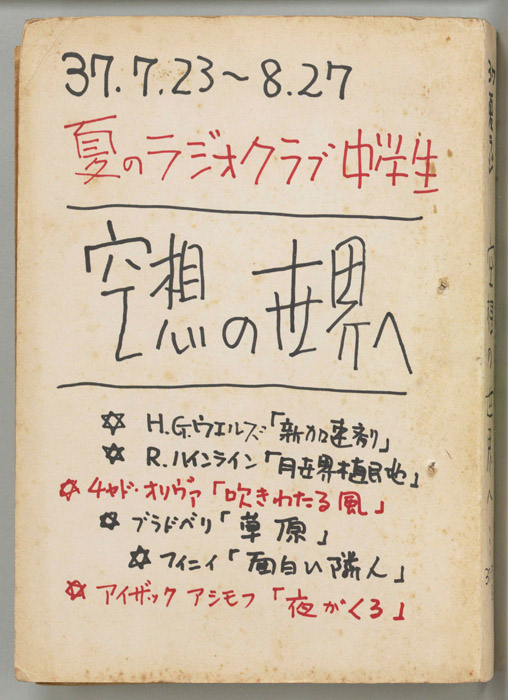 37.7.23～8.27
夏のラジオクラブ 中学生
空想の世界へ
✡ H.G.ウエルズ「新加速剤」
✡ R.ハインライン「月世界植民地」
✡ チャド・オリヴァ「吹きわたる風」
✡ ブラドベリ「草原」
✡ フィニイ「面白い隣人」
✡ アイザック アシモフ「夜がくる」